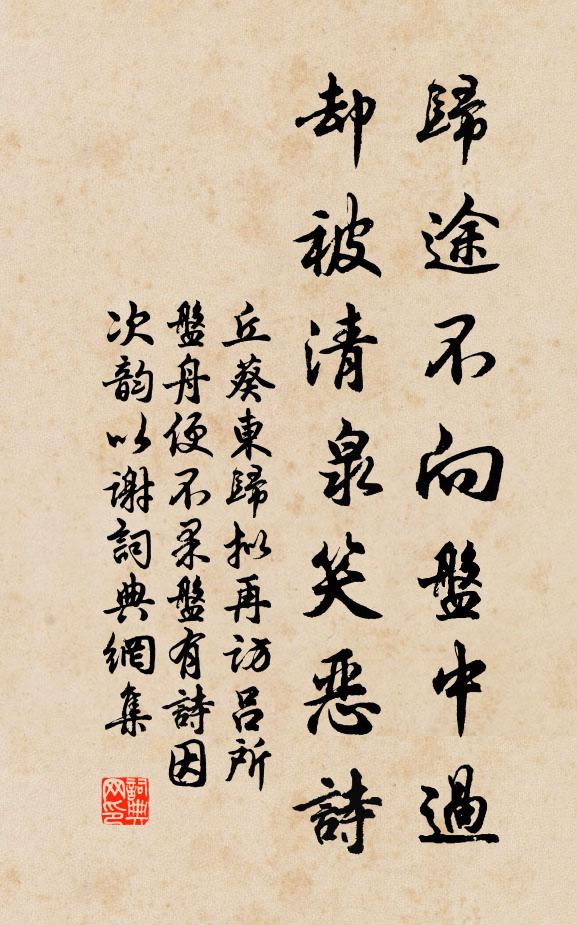 歸途不向盤中過
却被清泉笑惡詩
丘葵東歸拟再访吕所
盤舟便不果盤有詩因
次韵以谢詞典網集
詞典网印